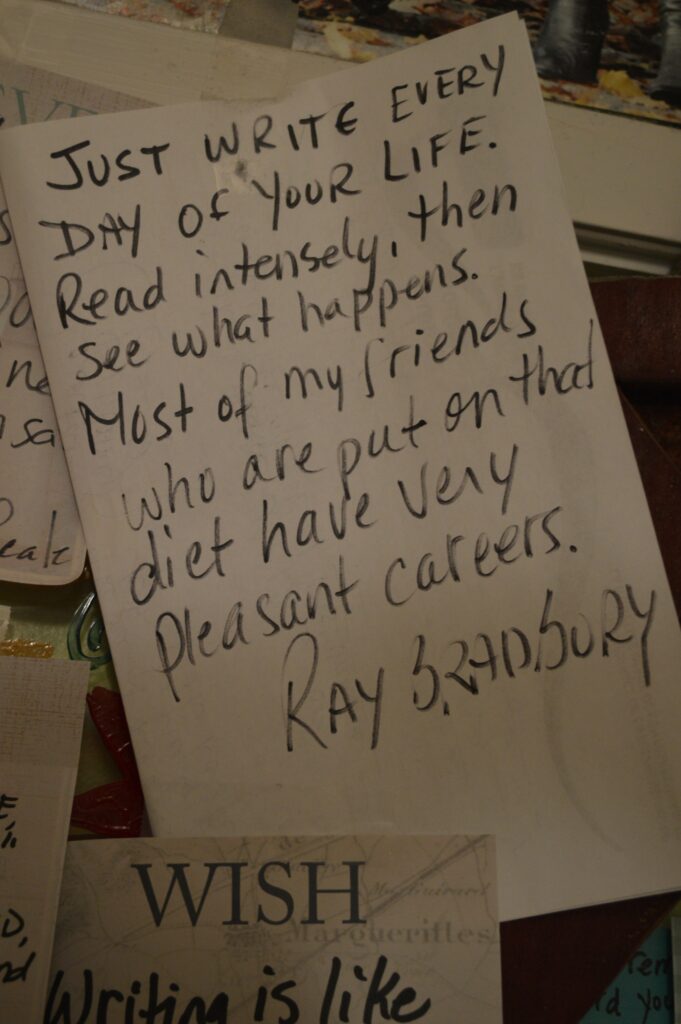 JUST WRITE EVERY
DAY OF YOUR LIFE.
Read intensely, then
see what happens.
Most of my friends
who are put on that
diet have very
pleasant careers.
RAY BRADBURY
WISH
Margherittes
Writing is like